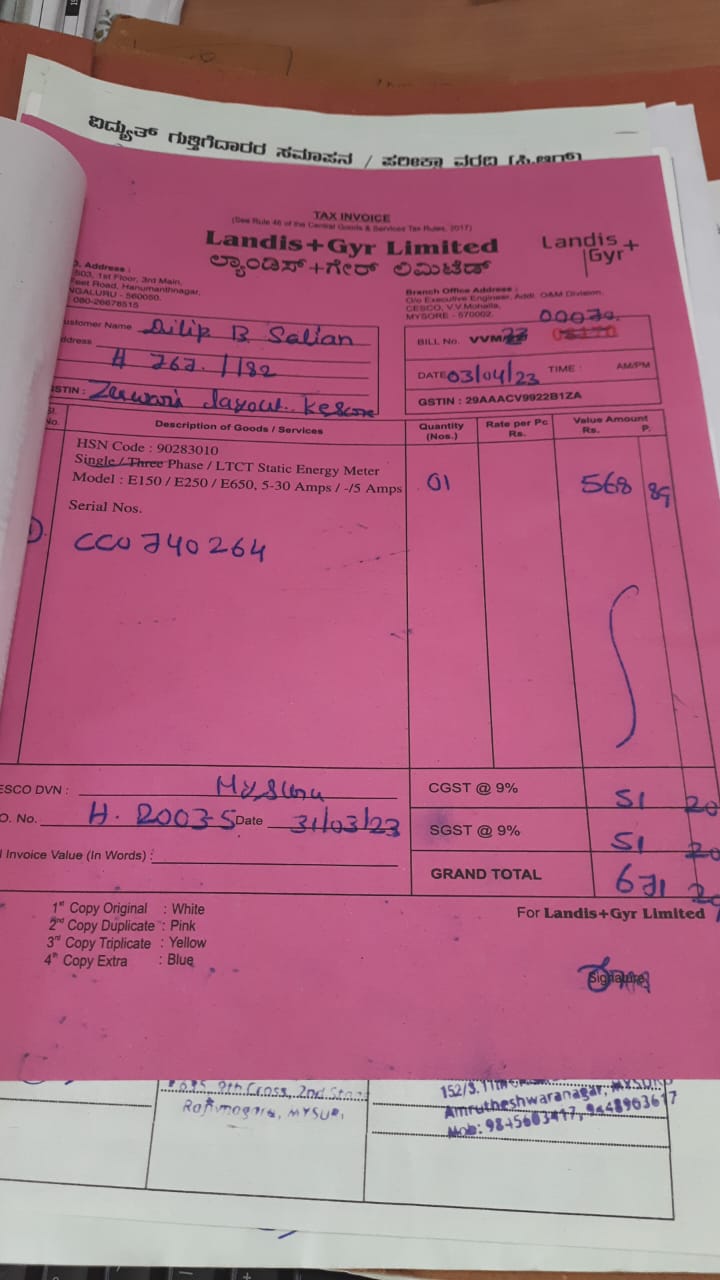 ವಿದ್ಯುತ್ ಗುತ್ತಿಗೆದಾರರ ಸಮಾಪನ / ಪರೀಕ್ಷಾ ವರದಿ (ಸಿ.ಆರ್)
TAX INVOICE
(See Rule 46 of the Central Goods & Services Tax Rules, 2017)
Landis+Gyr Limited
ಲ್ಯಾಂಡಿಸ್+ಗೇರ್ ಲಿಮಿಟೆಡ್
Landis+
Gyr
Address :
503, 1st Floor, 3rd Main,
Feet Road, Hanumanthnagar,
NGALURU - 560050.
080-26678515
Branch Office Address :
O/o Executive Engineer, Addl. O&M Division,
CESCO, V.V.Mohalla,
MYSORE - 570002.
ustomer Name Dilip B Salian
ddress
# 767. /182
STIN : layout
00070
BILL No. VVM/23
DATE 03/04/23 TIME : AM/PM
GSTIN : 29AAACV9922B1ZA
Sl. No. Description of Goods / Services Quantity (Nos.) Rate per Pc Rs. Value Amount Rs. P.
HSN Code : 90283010
Single / Three Phase / LTCT Static Energy Meter
Model : E150 / E250 / E650, 5-30 Amps / -/5 Amps 01 568 89
Serial Nos.
1) CCU740264
ESCO DVN : Mysuru
O. No. H. 2003-5 Date 31/03/23
Invoice Value (In Words) :
CGST @ 9% 51 20
SGST @ 9% 51 20
GRAND TOTAL 671 20
1st Copy Original : White
2nd Copy Duplicate : Pink
3rd Copy Triplicate : Yellow
4th Copy Extra : Blue
For Landis+Gyr Limited
Signature
9th Cross, 2nd
MYSUR
Amrutheshwaranagar, MYSURU